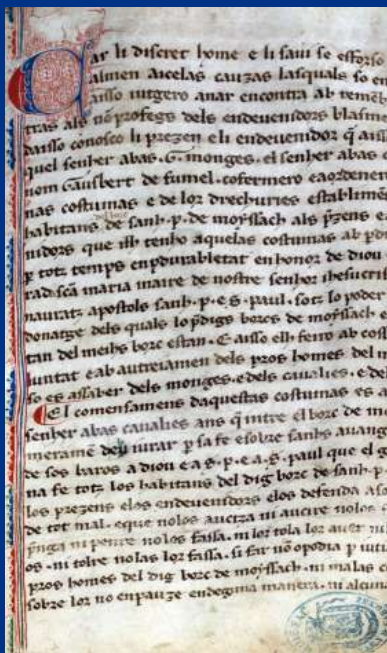 Car li discret home e li savi se esforso
aicelas cauzas lasquals so en
aisso iutgero anar encontra ab temen
tras als nō profegs dels endevenidors blasm
daisso conosco li prezen e li endevenidor q̄ aiss
quel senher abas .G. monges. el senher abas
nom Gausbert de fumel. cofermero e aordenero
nas costumas e de lor drechurias establimē
habitans de sanh .p. de moyssach als p̄zens e
nidors que ilh tenho aquelas costumas ab pdu
p totz temps en pdurabletat en honor de diou
rad sc̄a maria maire de nostre senhor ihesucrist
nauratz apostols sanh .p. e .s. paul. sotz lo poder
donatge dels quals lo p̄digs borcs de moyssach e
tan del meihs borc estan. E aisso elh fero ab cos
luntat e ab autreiamen dels pros homes del m
so es assaber dels monges. e dels cavaliers. e del
El comensamens daquestas costumas es. q
senher abas cavaliers ans q̄ intre el borc de m
meramē deu iurar p sa fe e sobre sanhs avang
de sos baros a diou e a .s. p. e a .s. paul que el g
na fe totz los habitans del dig borc de sanh .p.
los prezens e los endevenidors e los defenda a so
de tot mal. e que no los auciza ni aucire no los
p̄nga ni penre no los fassa. ni lor tola lor aver ni
os. ni tolre no las lor fassa. si far nō o podia p iuti
pros homes del dig borc de moyssach. ni malas co
sobre lor no enpauze en deguna maneira. ni alcun